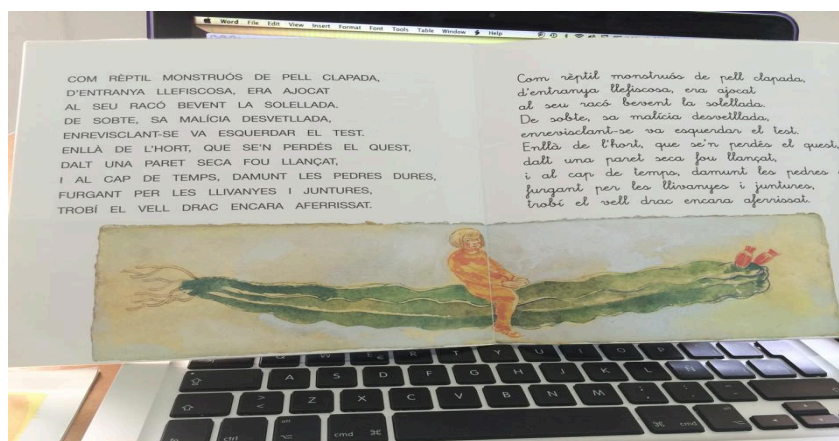 Word File Edit View Insert Format Font Tools Table Window Help
COM RÈPTIL MONSTRUÓS DE PELL CLAPADA,
D'ENTRANYA LLEFISCOSA, ERA AJOCAT
AL SEU RACÓ BEVENT LA SOLELLADA.
DE SOBTE, SA MALÍCIA DESVETLLADA,
ENREVISCLANT-SE VA ESQUERDAR EL TEST.
ENLLÀ DE L'HORT, QUE SE'N PERDÉS EL QUEST,
DALT UNA PARET SECA FOU LLANÇAT,
I AL CAP DE TEMPS, DAMUNT LES PEDRES DURES,
FURGANT PER LES LLIVANYES I JUNTURES,
TROBÍ EL VELL DRAC ENCARA AFERRISSAT.
Com rèptil monstruós de pell clapada,
d'entranya llefiscosa, era ajocat
al seu racó bevent la solellada.
De sobte, sa malícia desvetllada,
enrevisclant-se va esquerdar el test.
Enllà de l'hort, que se'n perdés el quest,
dalt una paret seca fou llançat,
i al cap de temps, damunt les pedres
furgant per les llivanyes i juntures,
trobí el vell drac encara aferrissat.
Q W E R T Y U I O P
A S D F G H J K L Ñ
Z X C V B N M
fn ctrl alt cmd cmd alt